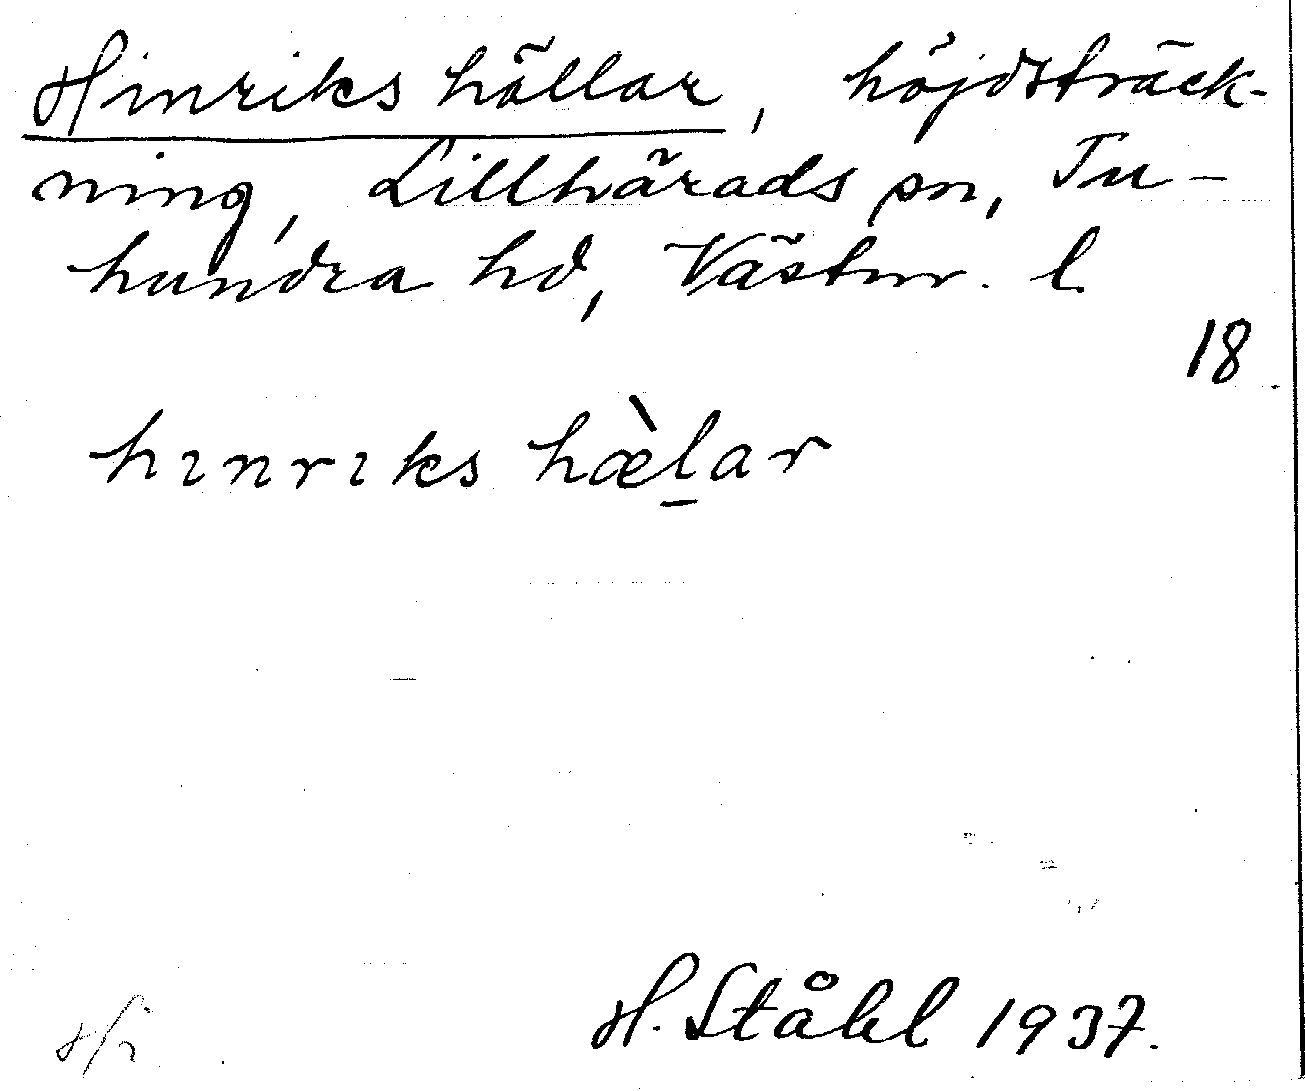 Hinriks hällar, höjdsträck-
ning, Lillhärads sn, Tu-
hundra hd, Västm. l.
18
hınrıks hæ̀l̠ar
H. Ståhl 1937.
Hi